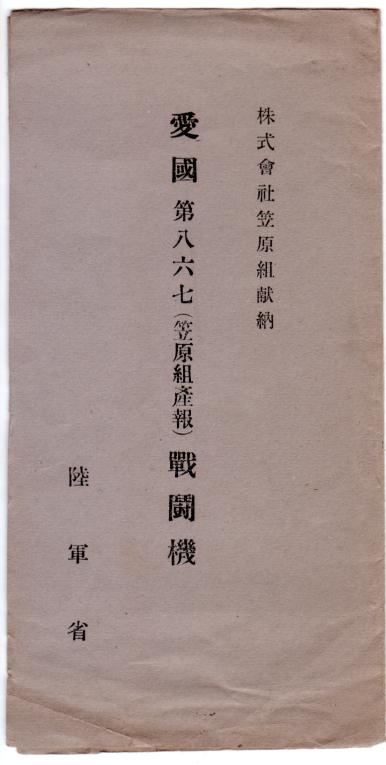 株式會社笠原組献納
愛國第八六七(笠原組產報)戰鬪機
陸軍省